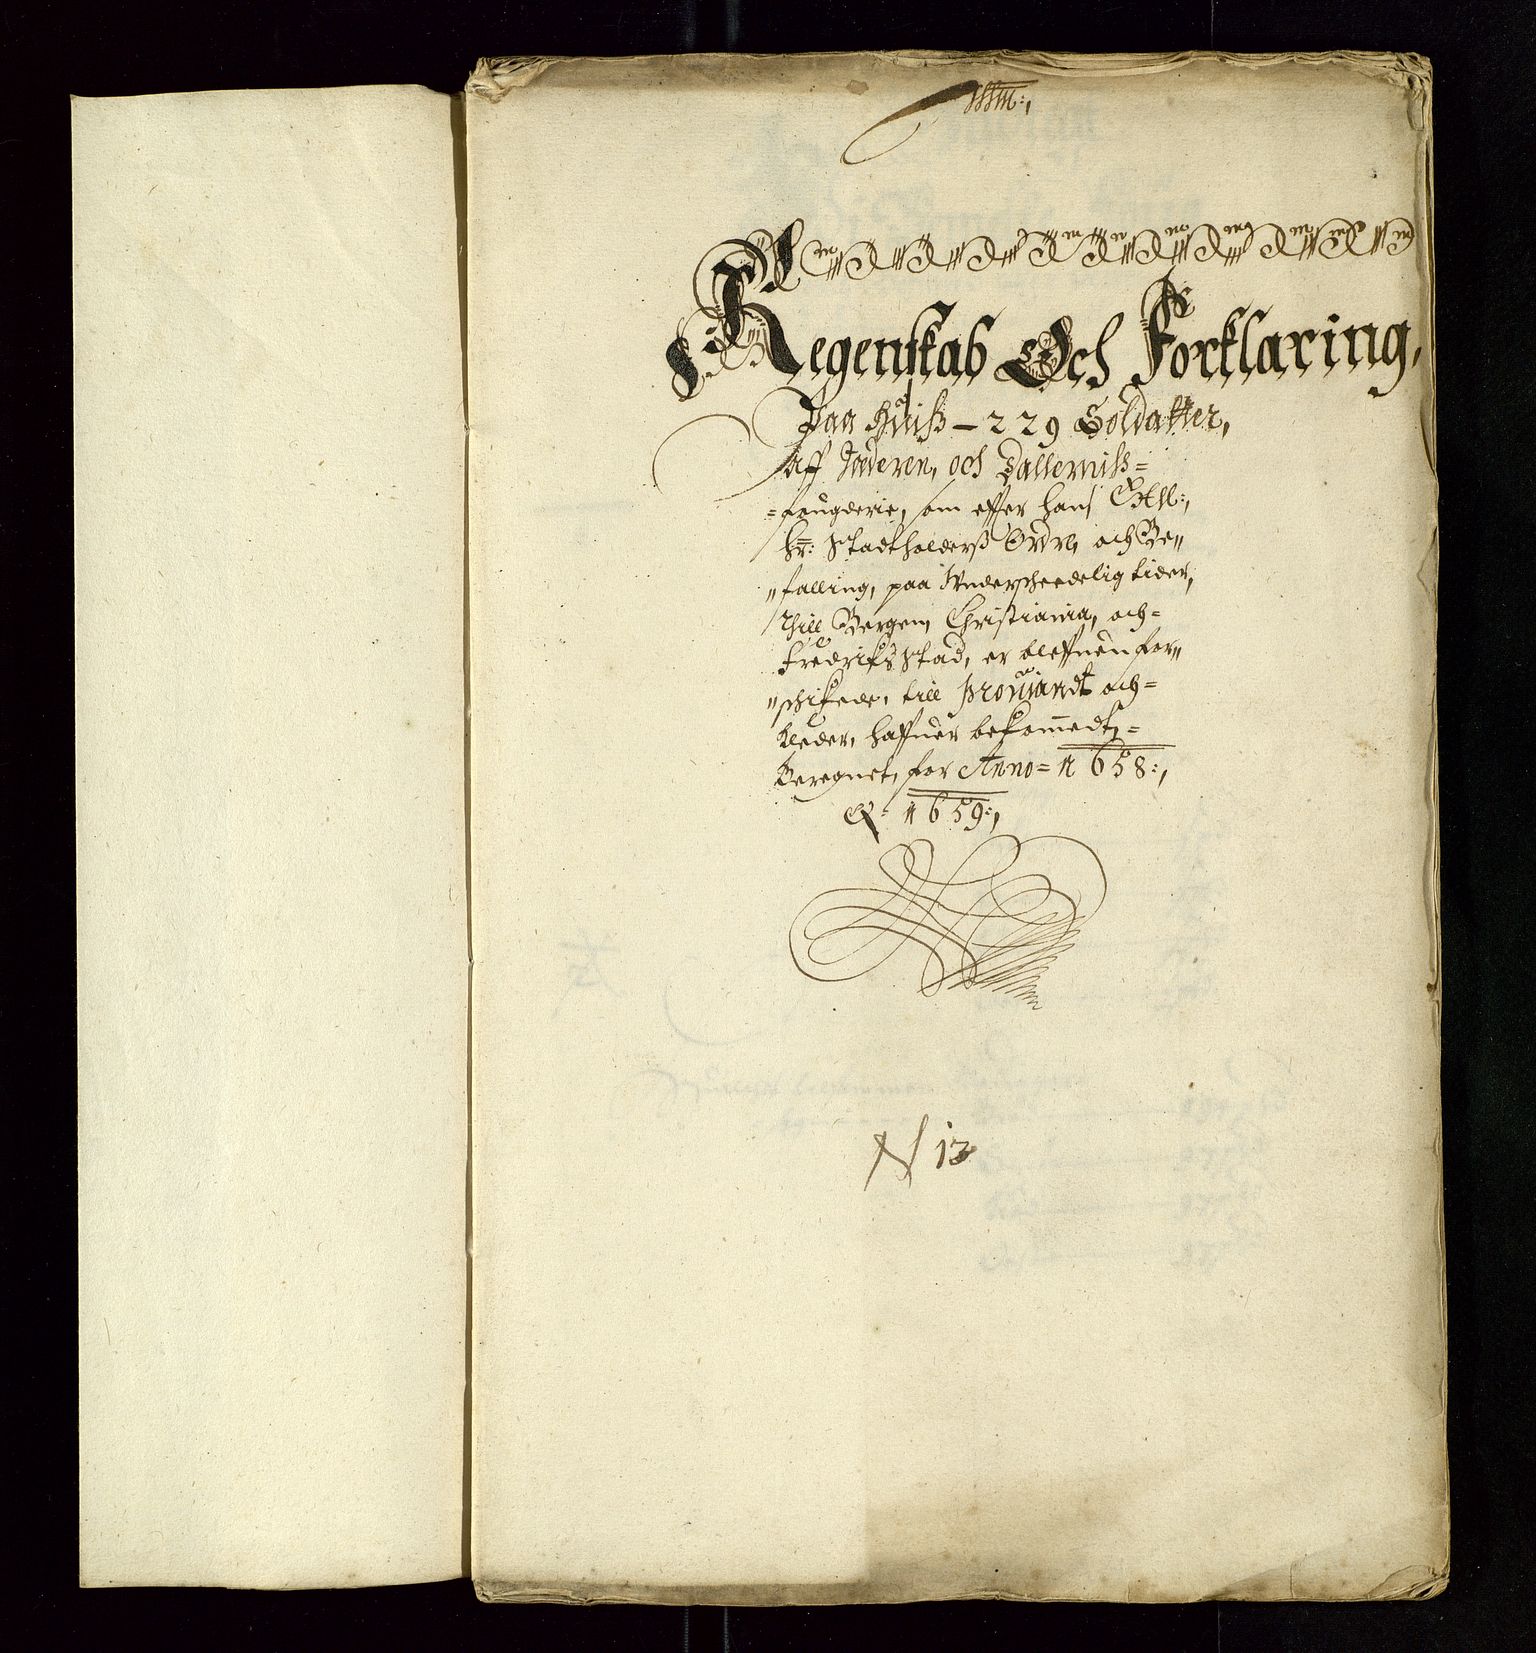 Regenskab Och Forklaring,
Paa Huiß – 229 Soldatter,
Aff Jæderen, och Dallerniß=
=fougderie, som effter hans Exell:,
Hr: Stadtholderß Ordre, och Be„
„falling, paa Vnderscheedelig tider,
Thill Bergen, Christiania, och=
Fredrichs Stad, er bleffuen for„
„schikede, till Prouiandt och=
kleder, haffuer bekommedt,=
Beregnet, for Anno= 1658:,
& 1659:,
N 13